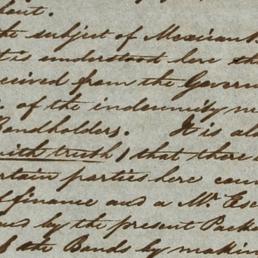 the subject of Mexican B
it is understood here th
ceived from the Govern
of the indemnity
Bondholders. It is al
with truth) that there
rtain parties here con
of finance and a Mr Es
by the present Pack
of the Bonds by makin